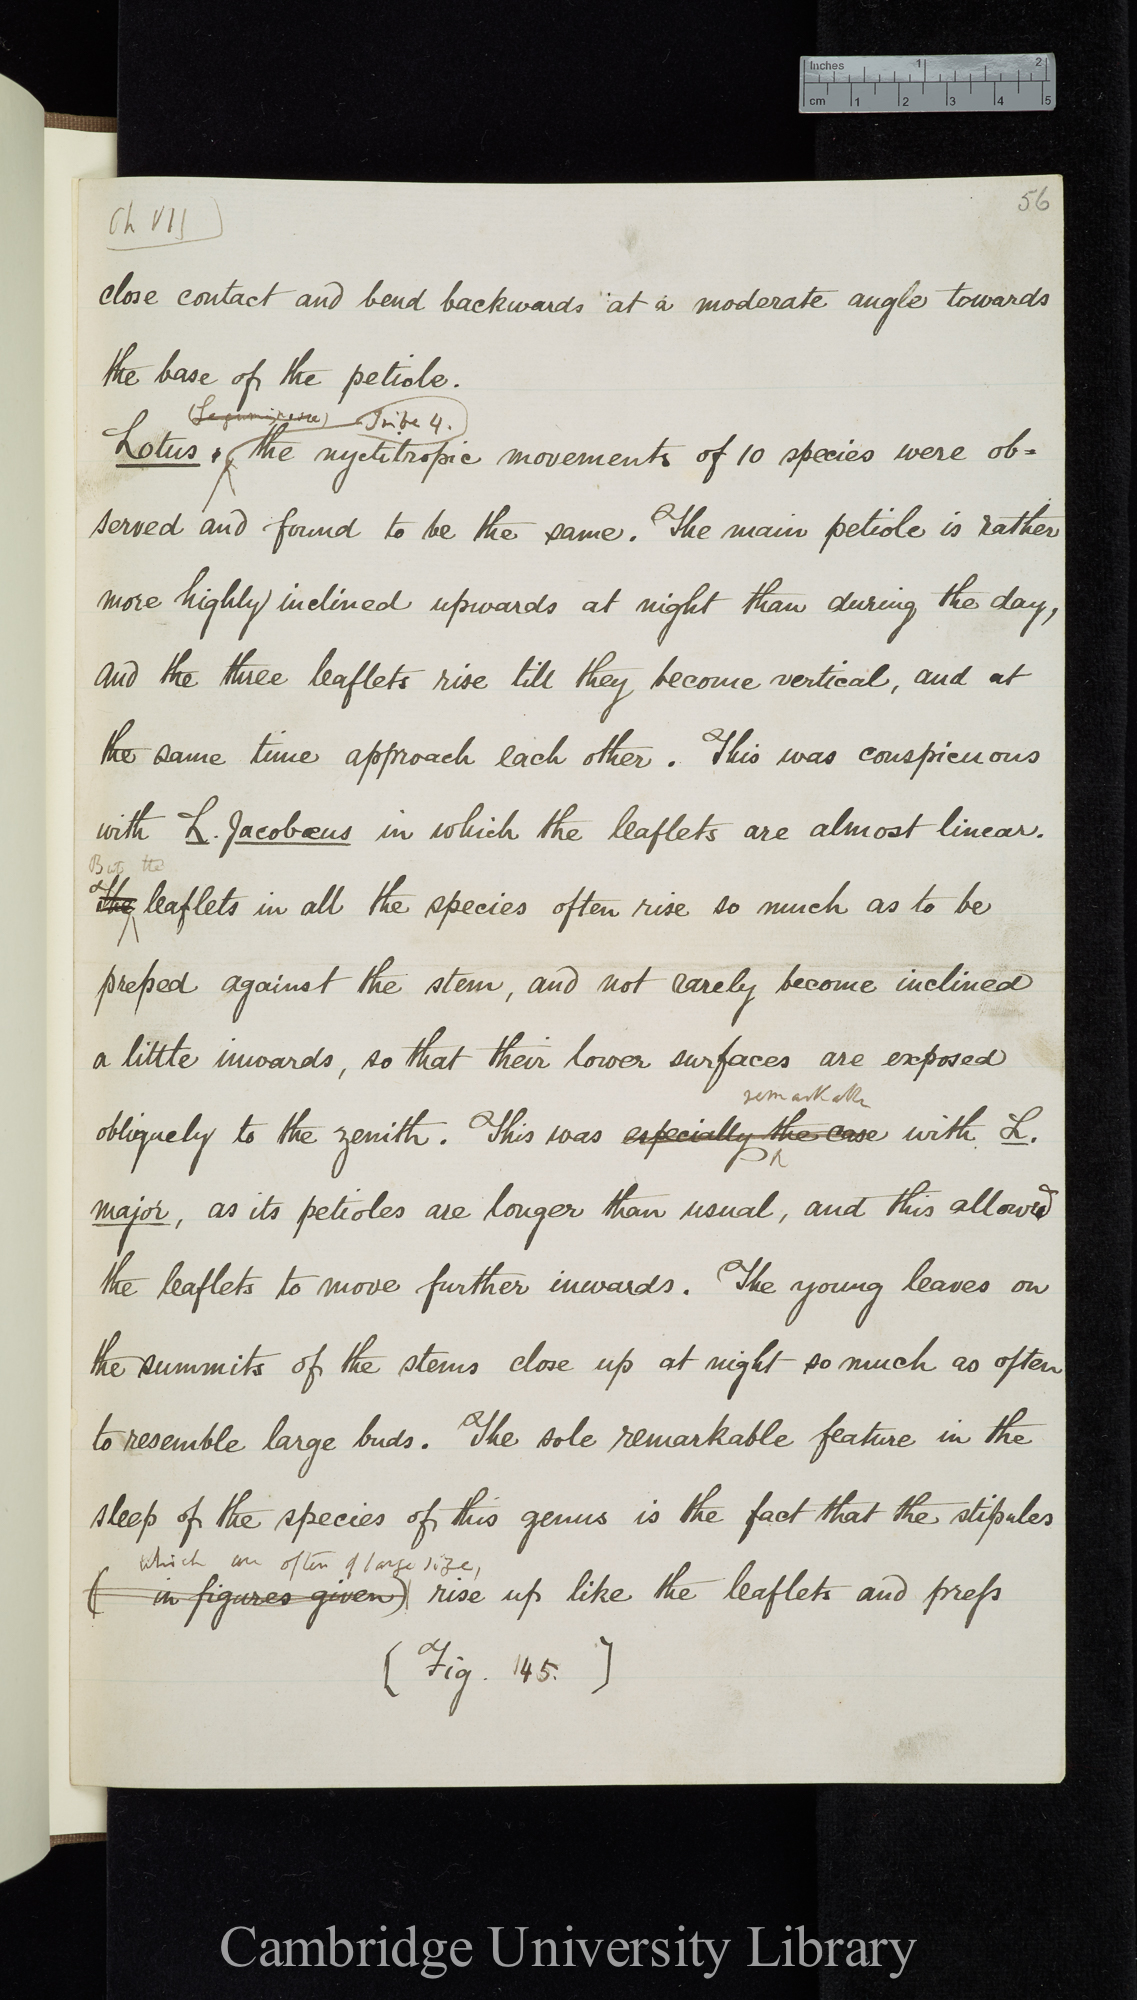 Inches 1 2
cm 1 2 3 4 5
56
Ch VII
close contact and bend backwards at a moderate angle towards
the base of the petiole.
(Leguminosae) Tribe 4.
Lotus. the nyctitropic movements of 10 species were ob=
served and found to be the same. The main petiole is rather
more highly inclined upwards at night than during the day,
and the three leaflets rise till they become vertical, and at
the same time approach each other. This was conspicuous
with L. Jacobæus in which the leaflets are almost linear.
But the
The leaflets in all the species often rise so much as to be
pressed against the stem, and not rarely become inclined
a little inwards, so that their lower surfaces are exposed
remarkable
obliquely to the zenith. This was especially the case with L.
major, as its petioles are longer than usual, and this allowed
the leaflets to move further inwards. The young leaves on
the summits of the stems close up at night so much as often
to resemble large buds. The sole remarkable feature in the
sleep of the species of this genus is the fact that the stipules
which are often of large size,
( in figures given) rise up like the leaflets and press
[ Fig. 145. ]
Cambridge University Library